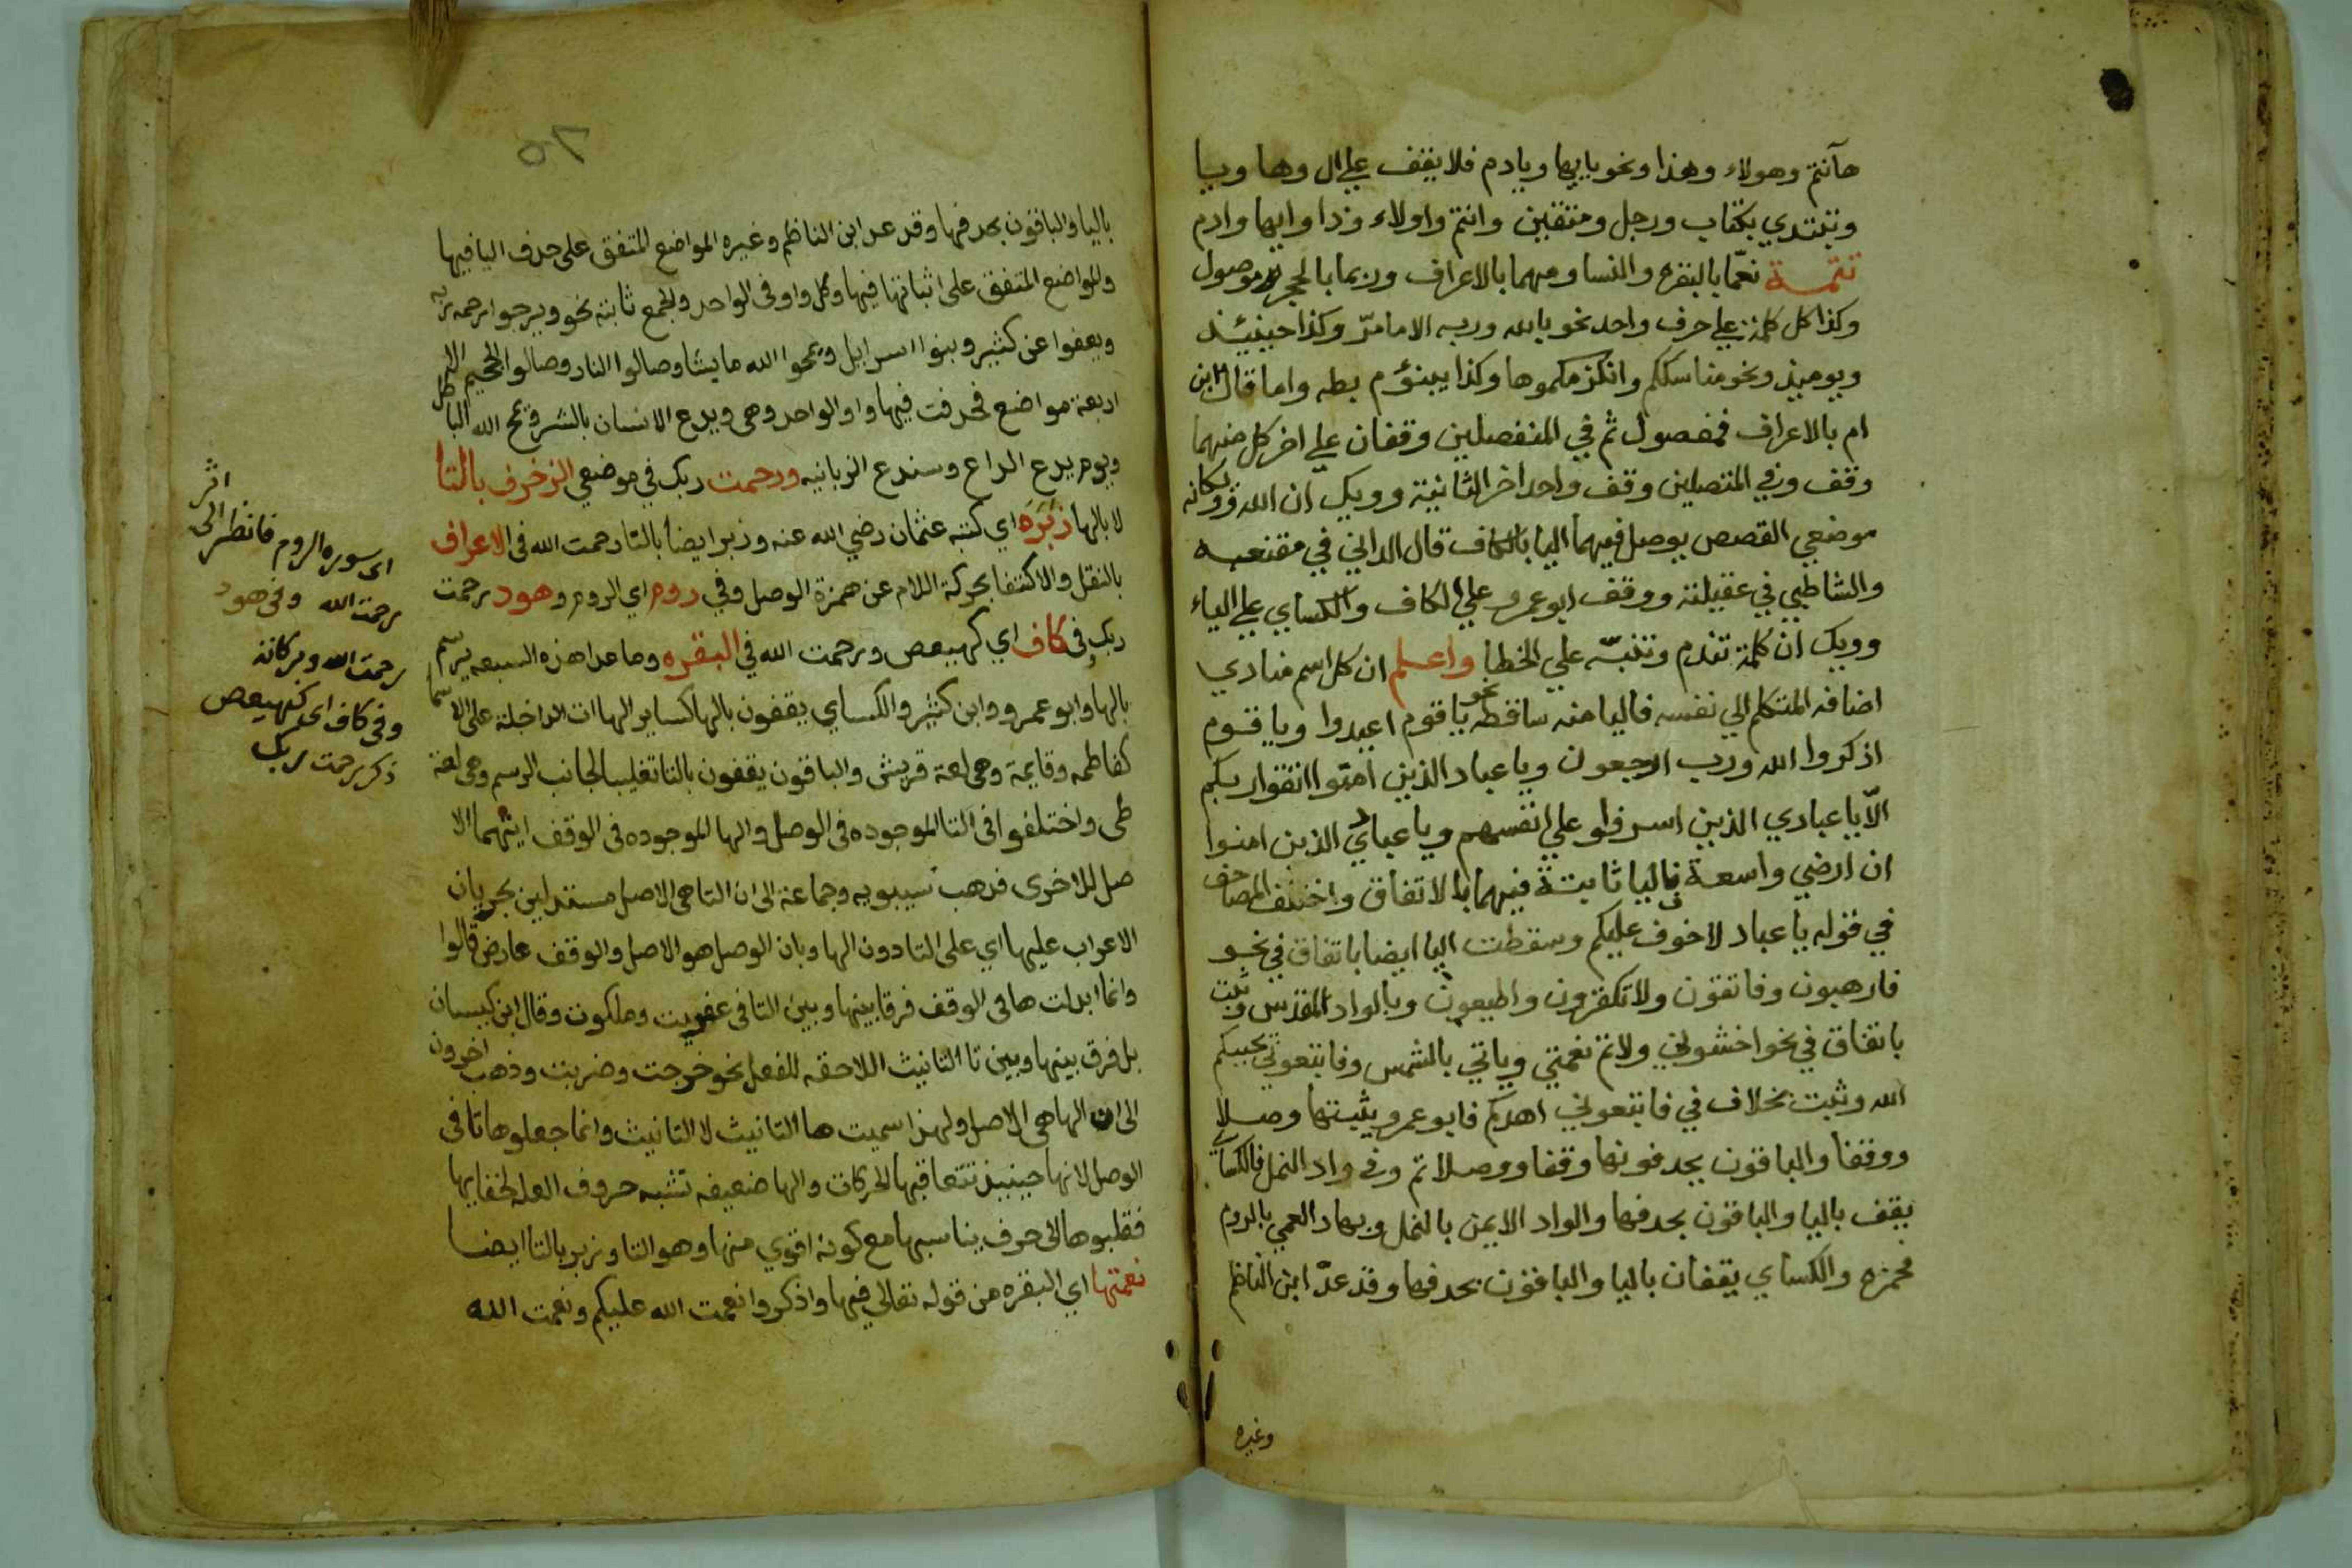 هآنتم وهولاء وهذا ونحو ياايها ويادم فلا يقف علي ال وها ويا
ويبتدي بكتاب ورجل ومتقين وانتم واولاء وذا وايها وادم
تتمة نعمّا بالبقره والنسا ومهما بالاعراف وربما بالحجر موصول
وكذا كل كلمة علي حرف واحد نحو بالله وربه الا مامرّ وكذا حينيئذ
ويوميذ ونحو مناسككم وانلزمكموها وكذا يبنؤم بطه واما قال ابن
ام بالاعراف فمفصول ثم في المنفصلين وقفان علي اخر كل منهما
وقف وفي المتصلين وقف واحد اخر الثانية وويك ان الله وويكانه
موضعي القصص يوصل فيهما اليا بالكاف قال الداني في مقنعه
والشاطبي في عقيلته ووقف ابو عمرو علي الكاف والكساي علي الياء
وويك ان كلمة تندم وتنبّه علي الخطا واعلم ان كل اسم منادي
اضافه المتكلم الي نفسه فاليا منه ساقطه نحو ياقوم اعبدوا وياقوم
اذكروا الله ورب ارجعون وياعباد الذين امنوا اتقوا ربكم
الّا ياعبادي الذين اسرفوا علي انفسهم وياعبادي الذين امنوا
ان ارضي واسعة فاليا ثابتة فيهما بالاتفاق واختلف المصاحف
في قوله ياعباد لاخوف عليكم وسقطت اليا ايضا باتفاق في نحو
فارهبون وفاتقون ولاتكفرون واطيعون وبالواد المقدس وثبت
باتفاق في نحو اخشوني ولاتم نعمتي وياتي بالشمس وفاتبعوني يحببكم
الله وثبت بخلاف في فاتبعوني اهدكم فابو عمرو يثبتها وصلا
ووقفا والباقون يحذفونها وقفا ووصلا ثم وفي واد النمل فالكساي
يقف باليا والباقون بحذفها والواد الايمن بالنمل وبهاد العمي بالروم
فحمزه والكساي يقفان باليا والباقون بحذفها وقد عدّ ابن الناظم
وغيره
باليا والباقون بحذفها وقد عد ابن الناظم وغيره المواضع المتفق على حذف اليا فيها
والمواضع المتفق على اثباتها فيها وكل واو في الواحد والجمع ثابته نحو ويرجوا رحمه ربه
ويعفوا عن كثير وبنوا اسرايل ويمحوا الله مايشا وصالوا النار وصالوا الجحيم الا
اربعة مواضع فحذفت فيها واو الواحد وهي ويدع الانسان بالشر ويمح الله الباطل
ويوم يدع الداع وسندع الزبانيه ورحمت ربك في موضعي الزخرف بالتا
لا بالها زبره اي كتبه عثمان رضي الله عنه وزبر ايضا بالتا رحمت الله في الاعراف
بالنقل والاكتفا بحركة اللام عن همزة الوصل وفي روم اي الروم وهود رحمت
ربك في كاف اي كهيعص ورحمت الله في البقره وماعدا هذه السبعه يرسم
بالها وابو عمرو وابن كثير والكساي يقفون بالها كساير الهاات الداخلة على الاسما
كفاطمه وقايمة وهي لغة قريش والباقون يقفون بالتا تغليبا لجانب الرسم وهي لغة
طى واختلفوا في التا الموجوده في الوصل والها الموجوده في الوقف ايتهما الا
صل للاخرى فذهب سيبويه وجماعة الى ان التا هي الاصل مستدلين بجريان
الاعراب عليها اي على التا دون الها وبان الوصل هو الاصل والوقف عارض قالوا
وانما ابدلت ها في الوقف فرقا بينها وبين التا في عفريت وملكوت وقال ابن كيسان
بل فرق بينها وبين تا التانيث اللاحقه للفعل نحو خرجت وضربت وذهب اخرون
الى ان الها هي الاصل ولهذا سميت ها التانيث لا التانيث وانما جعلوها تا في
الوصل لانها حينيذ تتعاقبها الحركات والها ضعيفه تشبه حروف العله لخفايها
فقلبوها الى حرف يناسبها مع كونه اقوي منها وهو التا وزبر بالتا ايضا
نعمتها اي البقره من قوله تعالى فيها واذكروا نعمت الله عليكم ونعمت الله
اي سوره الروم فانظر الى اثر
رحمت الله وفي هود
رحمت الله وبركاته
وفي كاف اي كهيعص
ذكر رحمت ربك